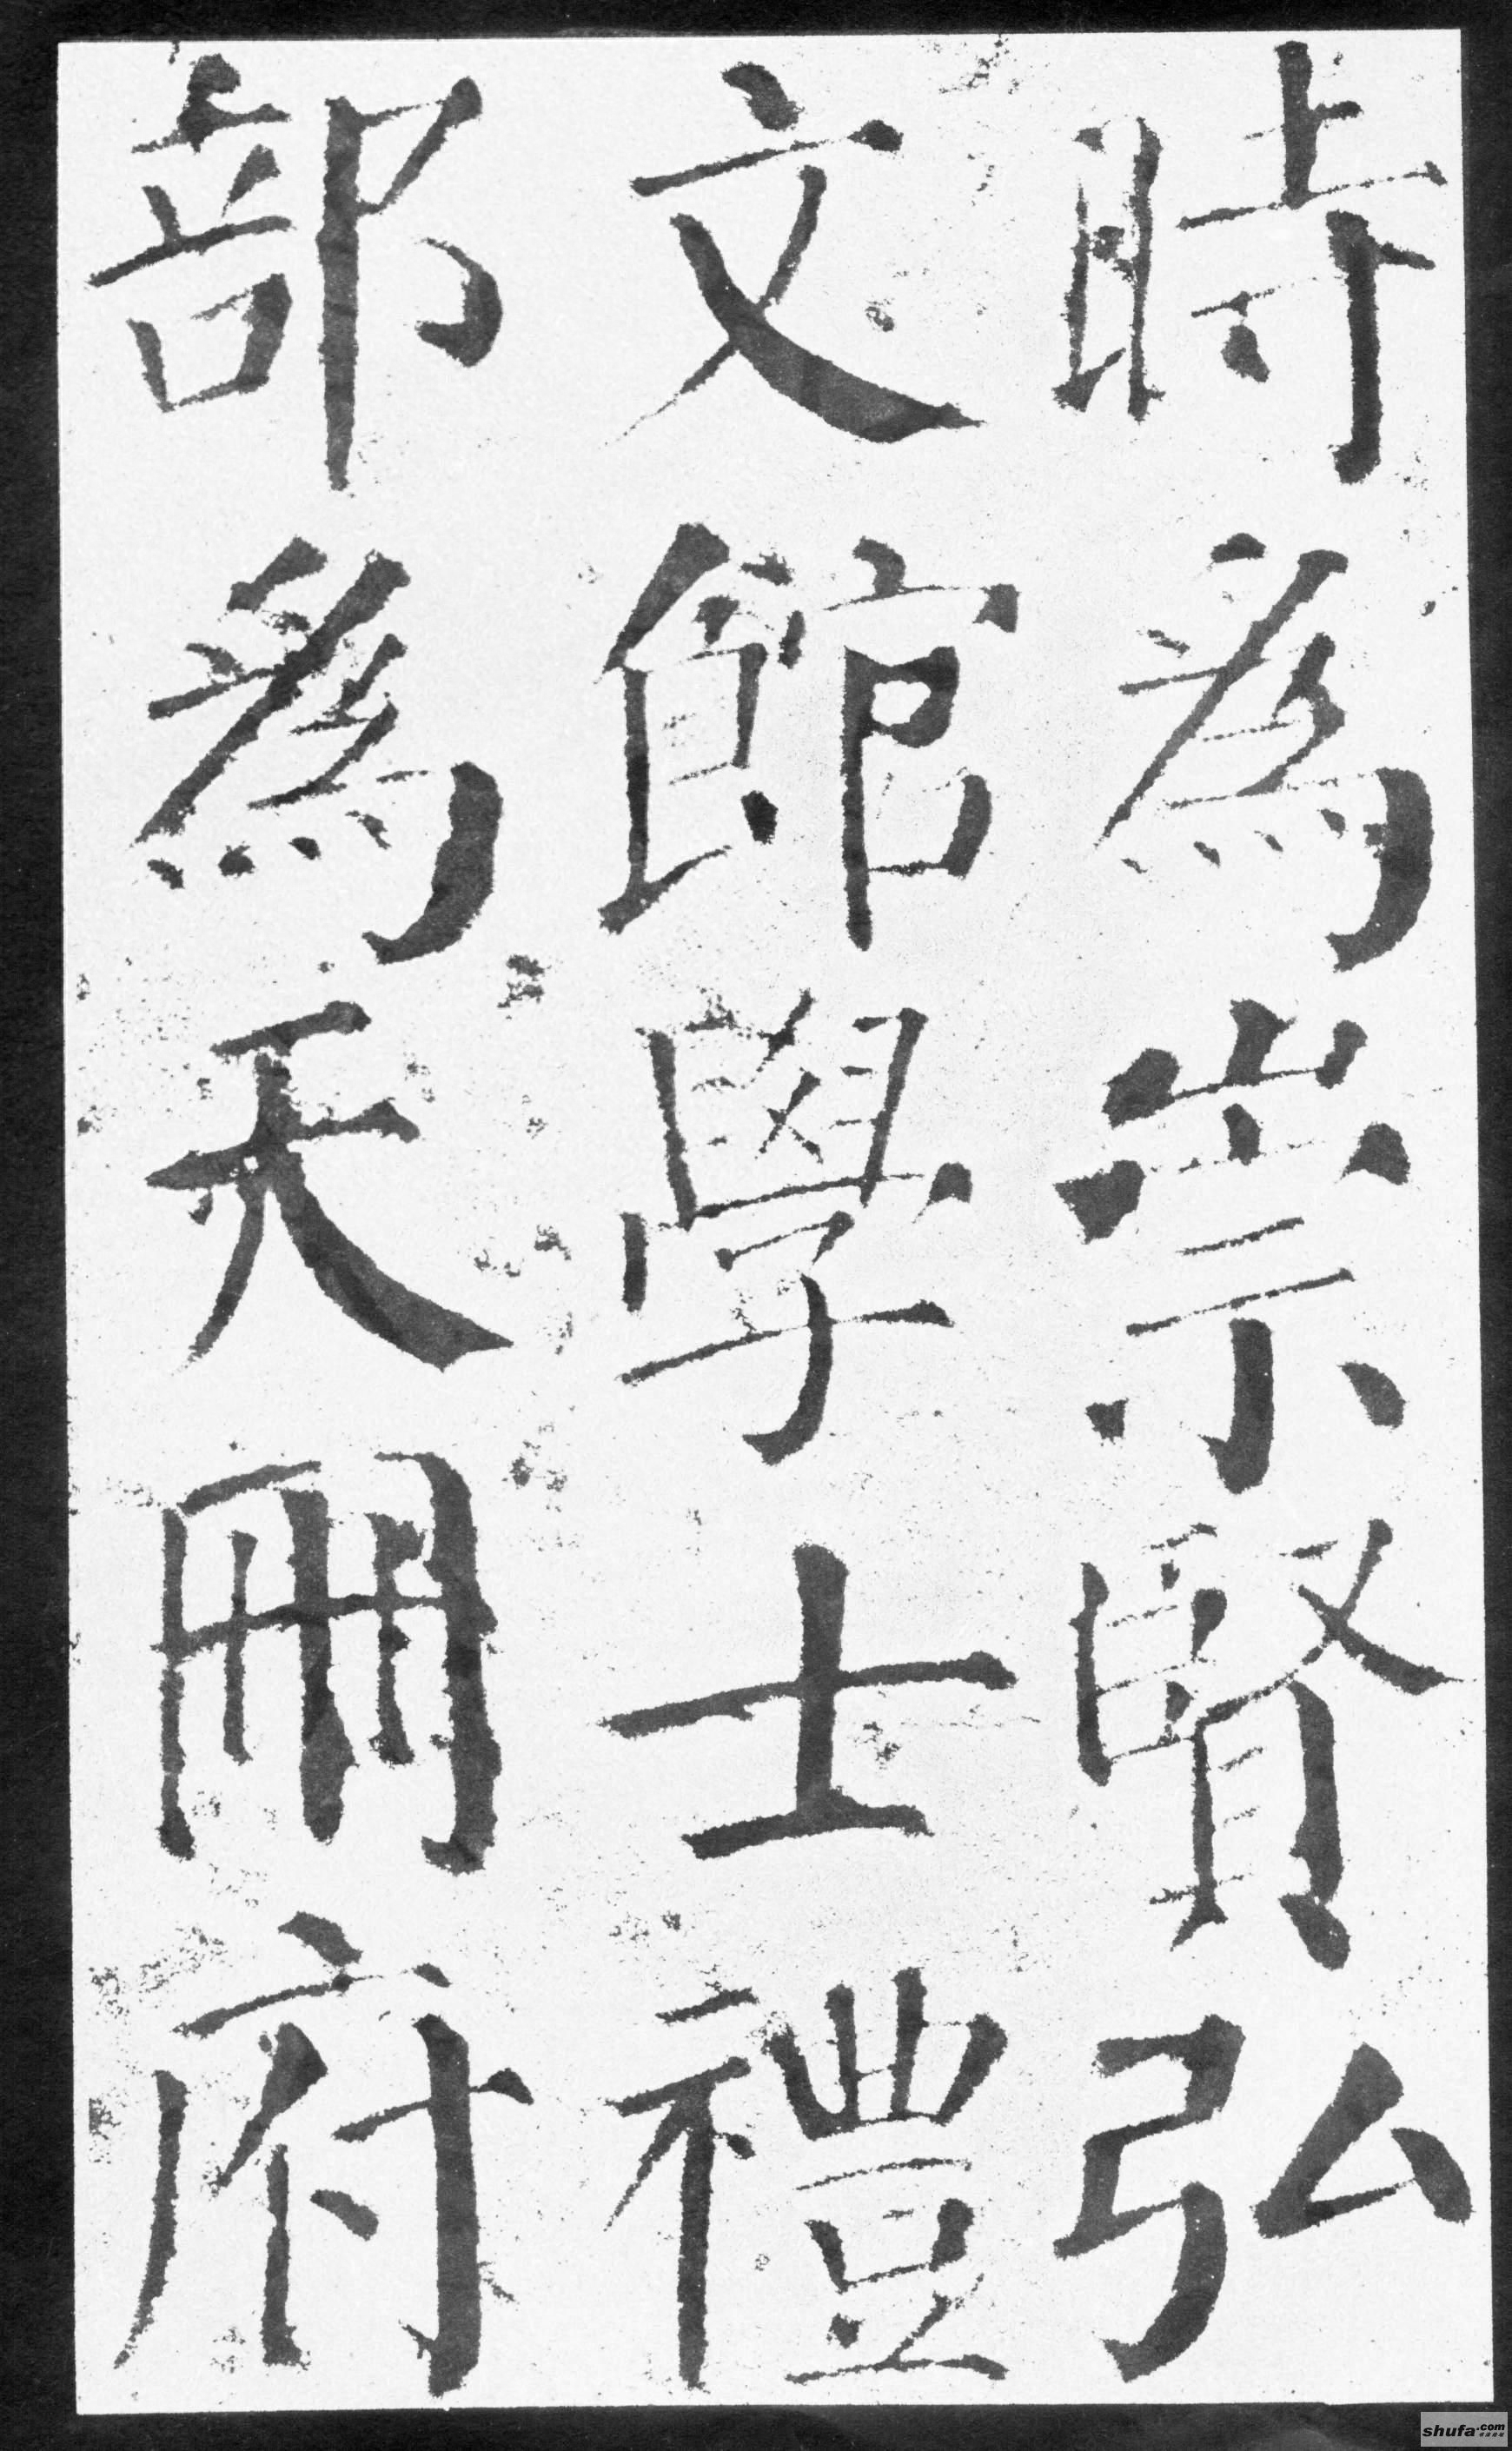 時為崇賢弘
文館學士禮
部為天冊府
shufa.com